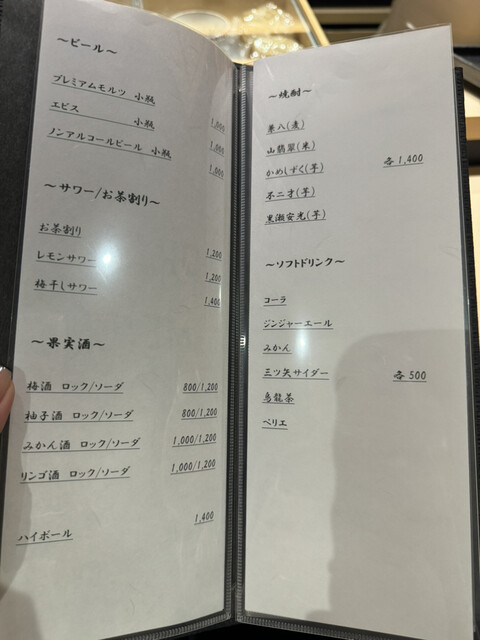 ~ビール~
プレミアムモルツ 小瓶 1,000
エビス 小瓶 1,000
ノンアルコールビール 小瓶 1,000
~サワー/お茶割り~
お茶割り 1,200
レモンサワー 1,200
梅干しサワー 1,400
~果実酒~
梅酒 ロック/ソーダ 800/1,200
柚子酒 ロック/ソーダ 800/1,200
みかん酒 ロック/ソーダ 1,000/1,200
リンゴ酒 ロック/ソーダ 1,000/1,200
ハイボール 1,400
~焼酎~
兼八(麦)
山翡翠(米)
かめしずく(芋) 各1,400
不二才(芋)
黒瀬安光(芋)
~ソフトドリンク~
コーラ
ジンジャーエール
みかん
三ツ矢サイダー 各500
烏龍茶
ペリエ